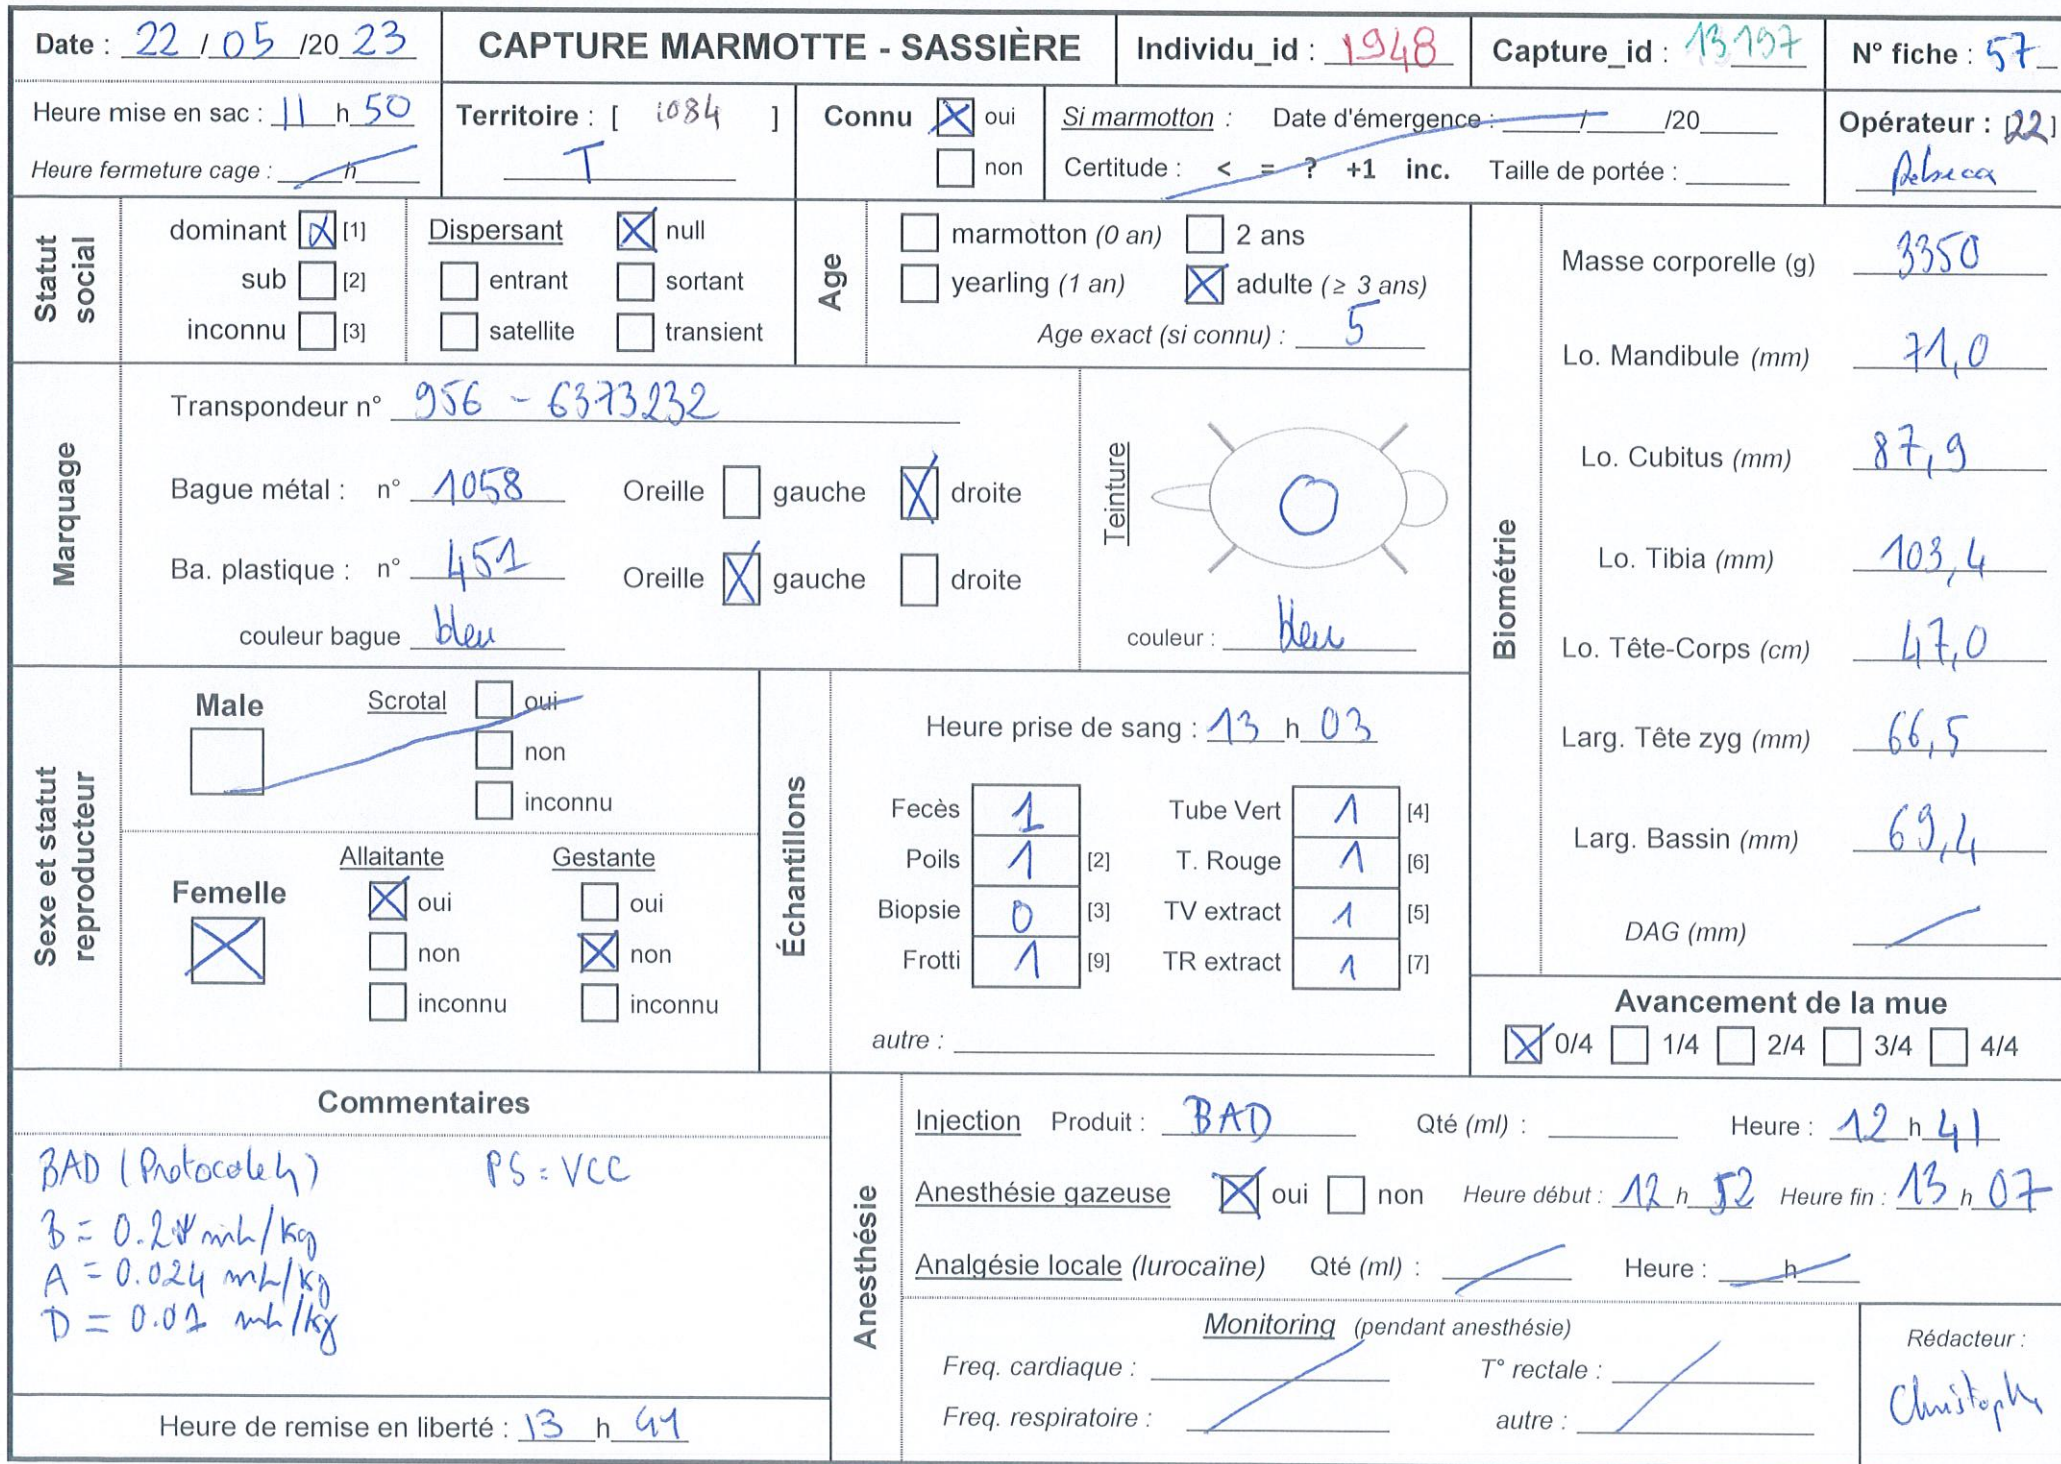 Date : 22 / 05 /20 23
CAPTURE MARMOTTE - SASSIÈRE
Individu_id : 1948
Capture_id : 13197
N° fiche : 57
Heure mise en sac : 11 h 50
Heure fermeture cage : h
Territoire : [ 1084 ]
T
Connu oui
non
Si marmotton : Date d'émergence : / /20
Certitude : < = ? +1 inc. Taille de portée :
Opérateur : [22]
Rebecca
Statut social
dominant [1]
sub [2]
inconnu [3]
Dispersant null
entrant sortant
satellite transient
Age
marmotton (0 an) 2 ans
yearling (1 an) adulte (≥ 3 ans)
Age exact (si connu) : 5
Marquage
Transpondeur n° 956 - 6373232
Bague métal : n° 1058 Oreille gauche droite
Ba. plastique : n° 451 Oreille gauche droite
couleur bague bleu
Teinture
couleur : bleu
Biométrie
Masse corporelle (g) 3350
Lo. Mandibule (mm) 71,0
Lo. Cubitus (mm) 87,9
Lo. Tibia (mm) 103,4
Lo. Tête-Corps (cm) 47,0
Larg. Tête zyg (mm) 66,5
Larg. Bassin (mm) 69,4
DAG (mm)
Sexe et statut reproducteur
Male Scrotal oui
non
inconnu
Femelle
Allaitante Gestante
oui oui
non non
inconnu inconnu
Échantillons
Heure prise de sang : 13 h 03
Fecès 1 Tube Vert 1 [4]
Poils 1 [2] T. Rouge 1 [6]
Biopsie 0 [3] TV extract 1 [5]
Frotti 1 [9] TR extract 1 [7]
autre :
Avancement de la mue
0/4 1/4 2/4 3/4 4/4
Commentaires
BAD (Protocole 4) PS = VCC
B = mL/kg
A = 0.024 mL/kg
D = 0.01 mL/kg
Heure de remise en liberté : 13 h 41
Anesthésie
Injection Produit : BAD Qté (ml) : Heure : 12 h 41
Anesthésie gazeuse oui non Heure début : 12 h 52 Heure fin : 13 h 07
Analgésie locale (lurocaïne) Qté (ml) : Heure : h
Monitoring (pendant anesthésie)
Freq. cardiaque : T° rectale :
Freq. respiratoire : autre :
Rédacteur :
Christophe